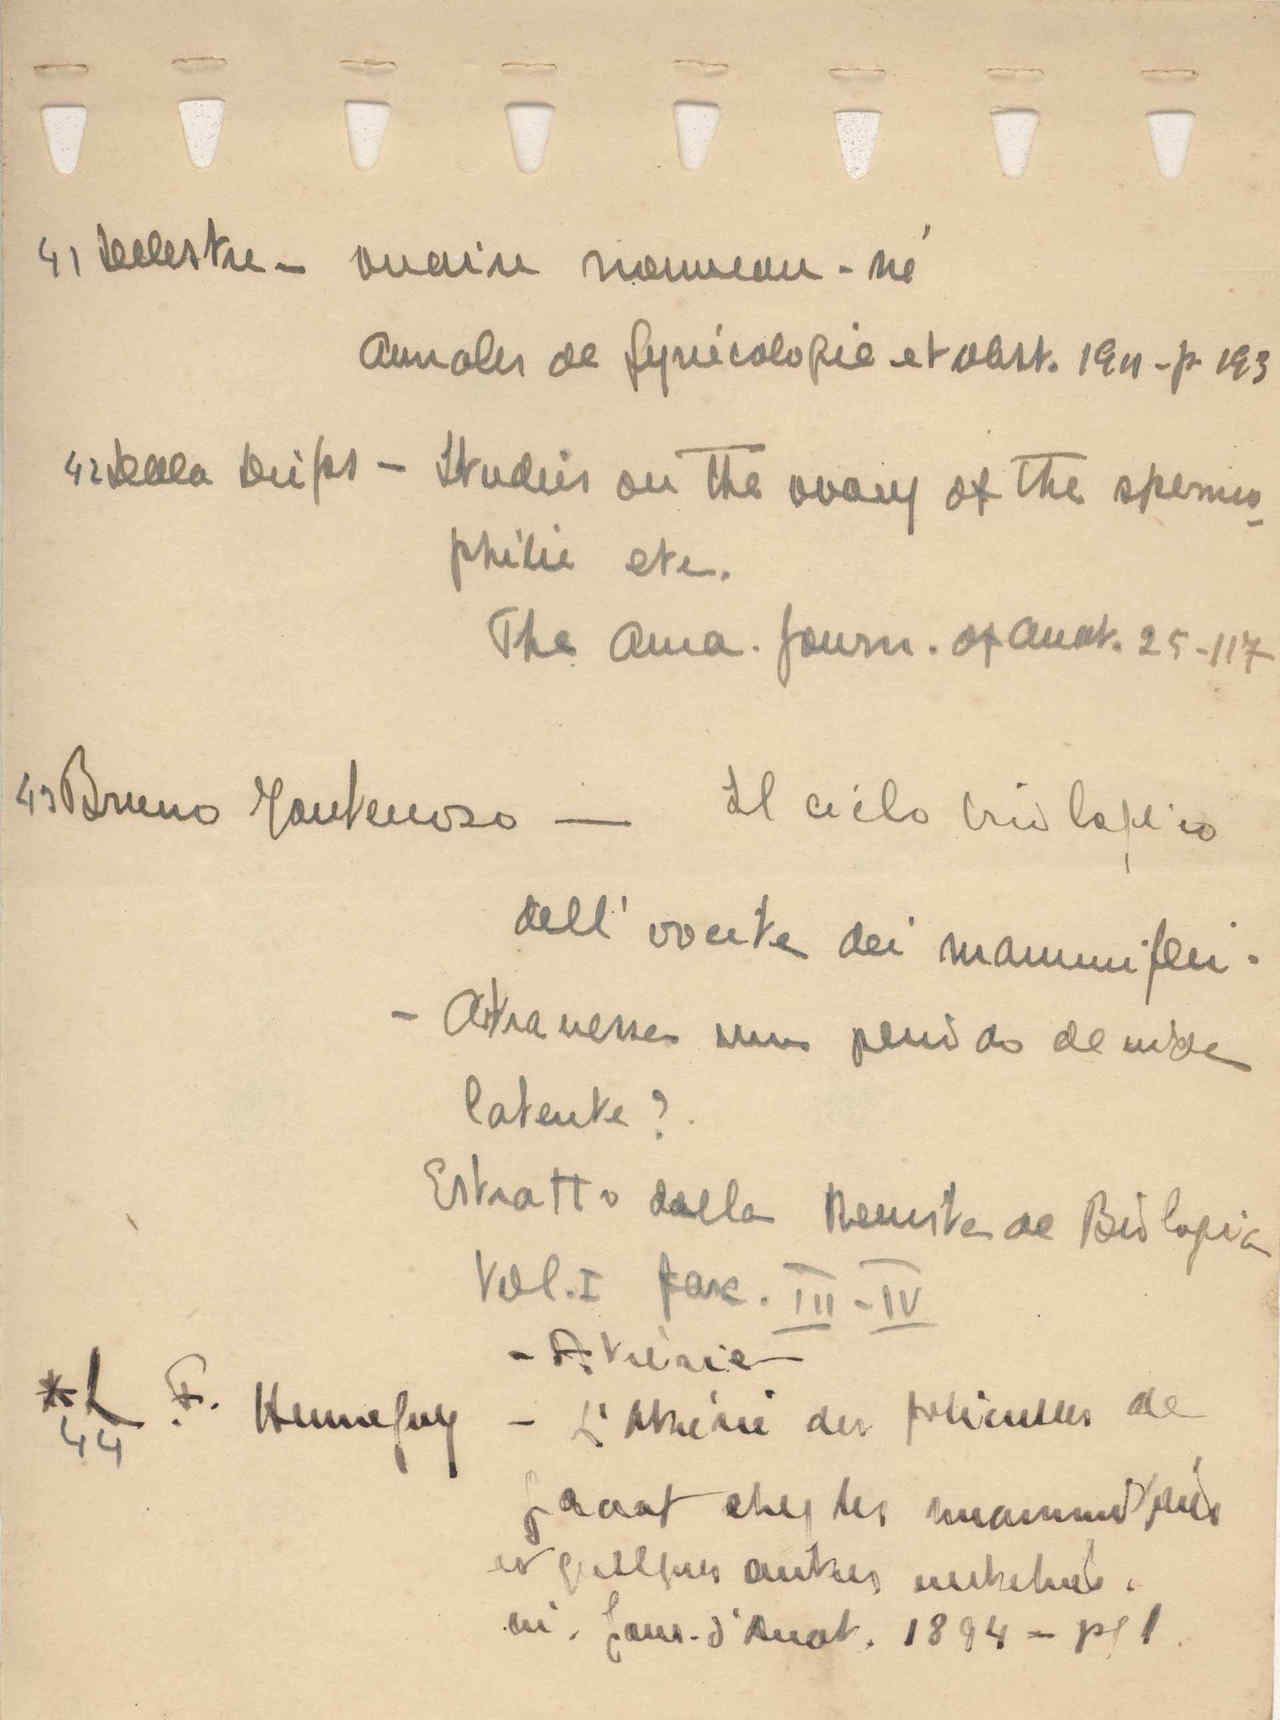 41 Delestre - ovaire nouveau-né
Annales de Gynécologie et obst. 1911 - p. 193
42 Della Drips - Studies on the ovary of the spermo-
philie etc.
The Ama. Journ. of Anat. 25-117
43 Bruno Monterosso — Il ciclo biologico
dell'ovocite dei mammiferi.
- Atraverse un periodo de vida
latente?
Estratto dalla Revista de Biologia
Vol. I fasc. III - IV
- Atrésie -
* L. F. Henneguy - L'Atrésie des folicules de
44
graaf chez les mammifères
et quelques autres vertebrés.
in. Jour. d'Anat. 1894 - pg 1